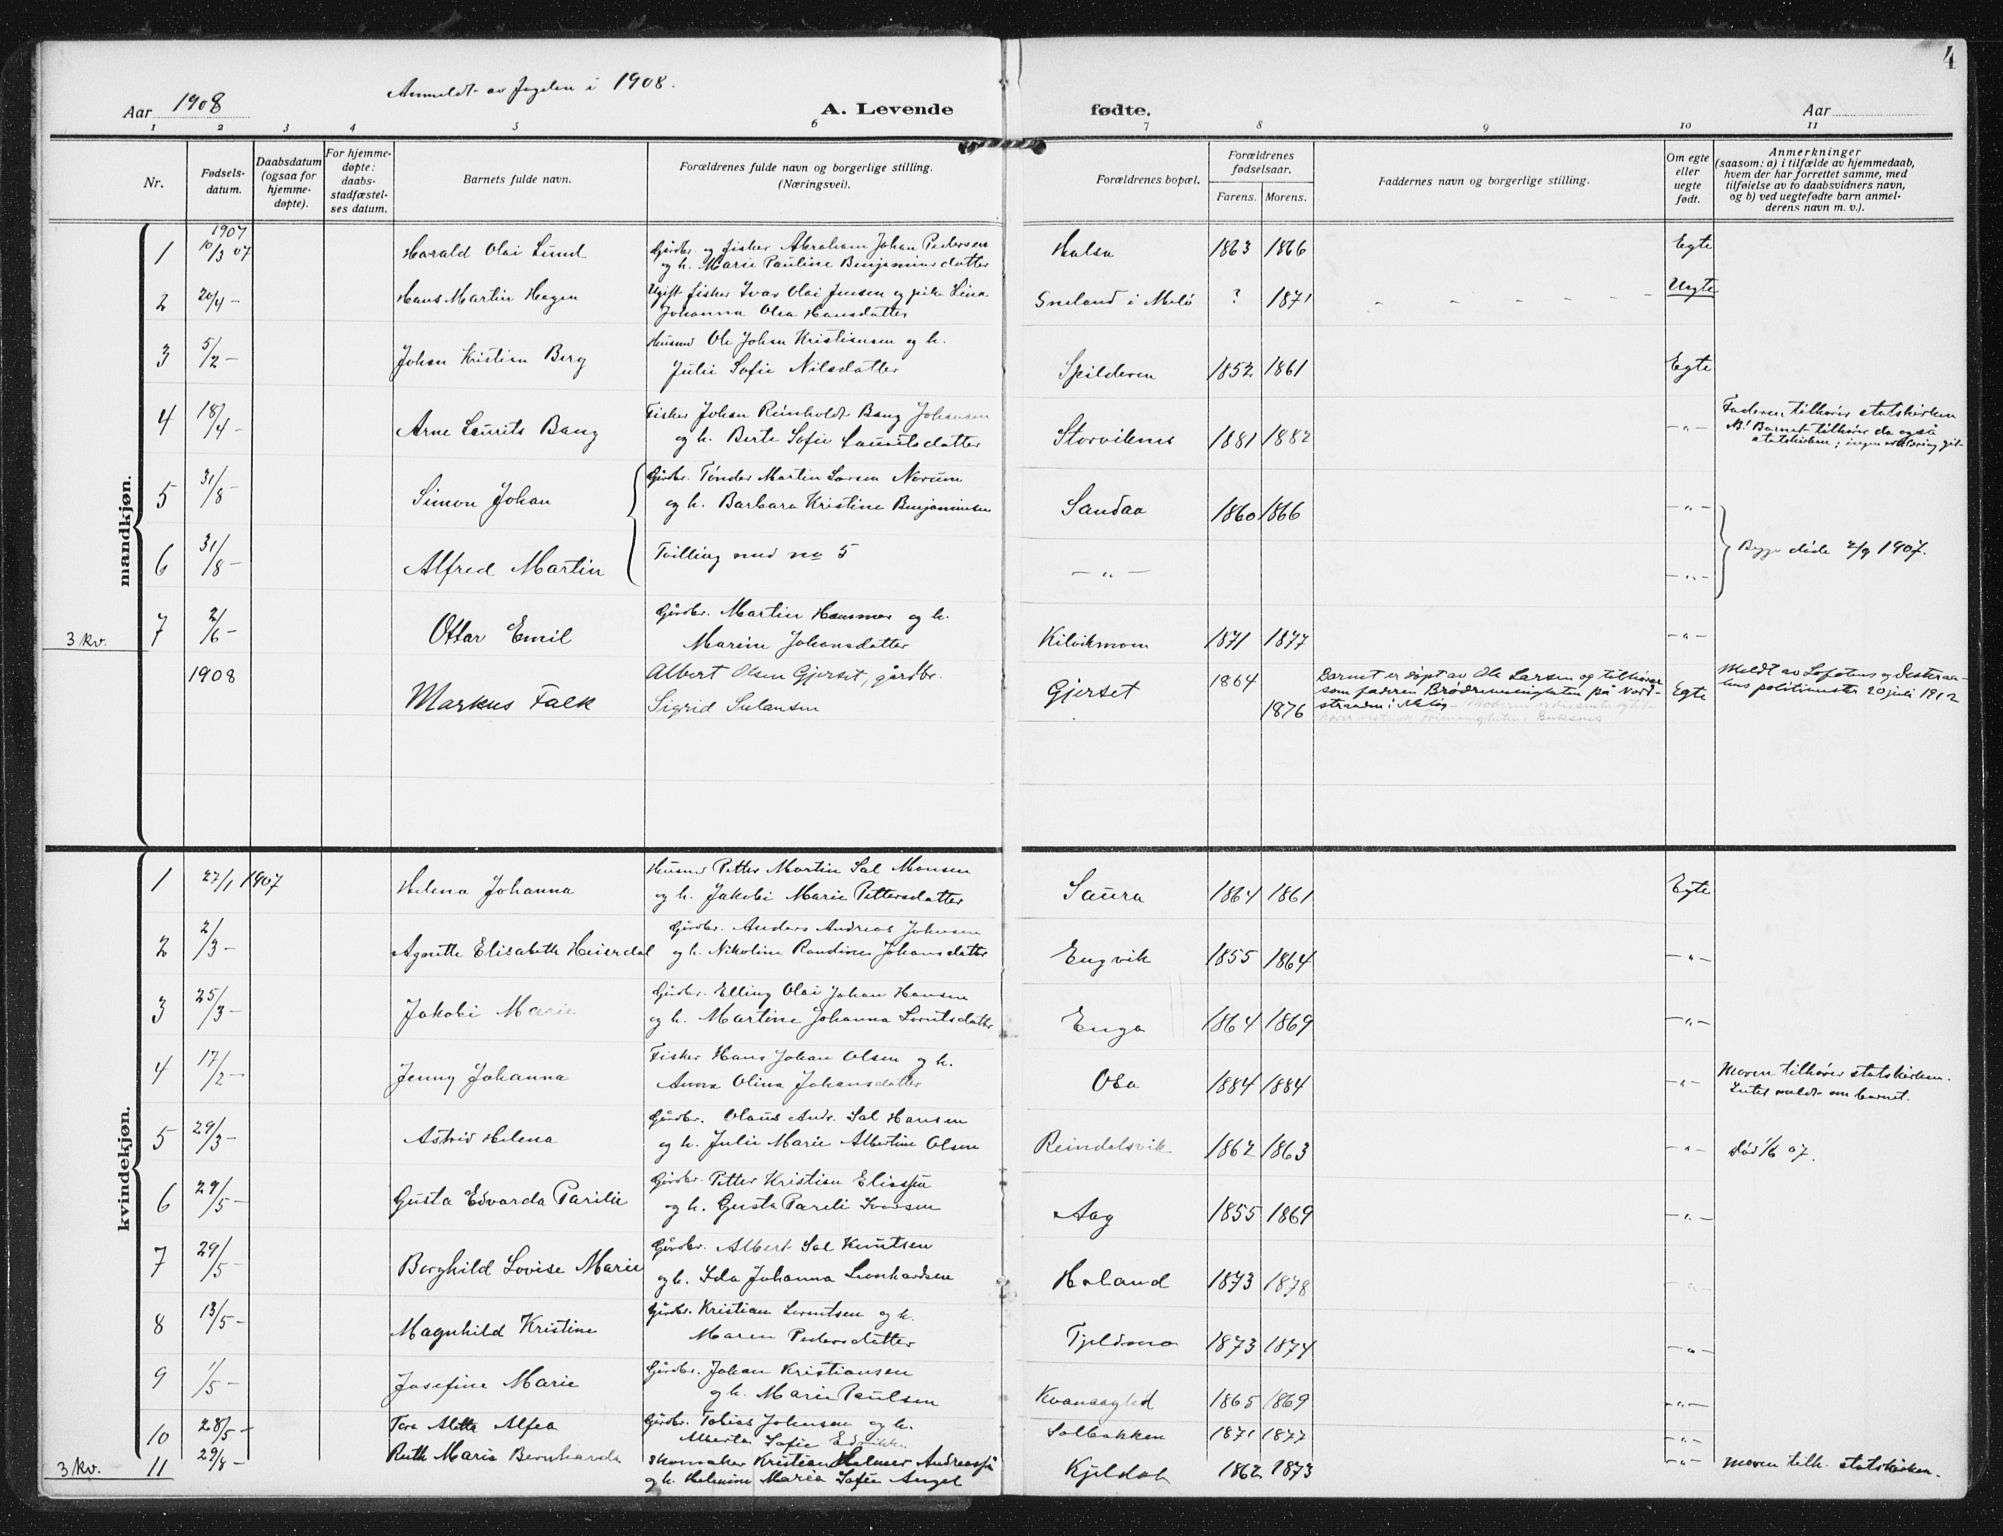 4
Anmeldt av fogden i 1908.
Aar 1908
A. Levende fødte.
Aar
1 2 3 4 5 6 7 8 9 10 11
Nr.
Fødsels-
datum.
Daabsdatum
(ogsaa for
hjemme-
døpte).
For hjemme-
døpte:
daabs-
stadfæstel-
ses datum.
Barnets fulde navn.
Forældrenes fulde navn og borgerlige stilling.
(Næringsvei).
Forældrenes bopæl.
Forældrenes
fødselsaar.
Farens. Morens.
Faddernes navn og borgerlige stilling.
Om egte
eller
uegte
født.
Anmerkninger
(saasom: a) i tilfælde av hjemmedaab,
hvem der har forrettet samme, med
tilføielse av to daabsvidners navn,
og b) ved uegtefødte barn anmel-
derens navn m. v.).
mandkjøn.
1907
1 10/3 07 Harald Olai Lund Gårdbr. og fisker Abraham Johan Pedersen Halsa 1863 1866 Egte
og h. Marie Pauline Benjaminsdatter
2 20/4 – Hans Martin Hagen Ugift fisker Ivar Olai Jensen og pike Lina Sneland i Melö ? 1871 Uegte
Johanna Olea Hansdatter
3 5/2 – Johan Kristian Berg Husmd Ole Johan Kristiansen og h.
Julie Sofie Nilsdatter Spilderen 1852 1861 Egte
4 18/4 – Arne Laurits Bang Fisker Johan Reinholdt Bang Johansen Faderen tilhører statskirken
og h. Berte Sofie Lauritsdatter Storvilenes 1881 1882 –"– N! Barnet tilhører da også
statskirken; ingen erklæring git
5 31/8 – Simon Johan Gårdbr. Tønder Martin Larsen Norum
og h. Barbara Kristine Benjaminsen Sandaa 1860 1866 –"–
6 31/8 – Alfred Martin Tvilling med no 5 –"– –"– Begge døde 2/9 1907.
7 2/6 – Ottar Emil Gårdbr. Martin Hansmar og h.
3 kv. Marine Johansdatter Kilvikmoen 1871 1877 –"–
1908 Markus Falk Albert Olsen Gjerset, gårdbr. Gjerset 1864 Barnet er döpt av Ole Larsen og tilhører Egte Meldt av Lofotens og Vesteraa-
Sigrid Sulansen 1876 som faderen Brødremenigheten på Nord- lens politimester 20 juli 1912
stranden i Melöy –
kvindekjøn.
1 27/1 1907 Helena Johanna Husmd Petter Martin Sal Monsen
og h. Jakobi Marie Pettersdatter Saura 1864 1861 Egte
2 2/3 – Agnethe Elisabeth Heierdal Gårdbr. Anders Andreas Johnsen
og h. Nikoline Randine Johansdatter Engvik 1855 1864 –"–
3 25/3 – Jakobi Marie Gårdbr. Elling Olai Johan Hansen
og h. Martine Johanna Lorntsdatter Enga 1864 1869 –"–
4 17/2 – Jenny Johanna Fisker Hans Johan Olsen og h. Moren tilhører statskirken.
Anna Olina Johansdatter Osa 1884 1884 –"– Intet meldt om barnet.
5 29/3 – Astrid Helena Gårdbr. Olaus Andr. Sal Hansen
og h. Julie Marie Albertine Olsen Reindalsvik 1862 1863 –"– Död 1/6 07.
6 29/5 – Gusta Edvarda Parilie Gårdbr. Petter Kristian Eliassen
og h. Gusta Pareli Ivarsen Aag 1855 1869 –"–
7 29/5 – Borghild Lovise Marie Gårdbr. Albert Sal Knutsen
og h. Ida Johanna Leonhardsen Haland 1873 1878 "
8 13/5 – Magnhild Kristine Gårdbr. Kristian Lorentsen og h.
Maren Pedersdatter Tjeldmo 1873 1874 –"–
9 1/5 – Josefine Marie Gårdbr. Johan Kristiansen
og h. Marie Paulsen Kvanaagled 1865 1869 –"–
10 28/5 – Tora Aletta Alfea Gårdbr. Tobias Johnsen og h.
Alberta Sofie Solbakken 1871 1877 –"–
3 kv. 11 29/8 – Ruth Marie Bernharda Skomaker Kristian Helmer Andreassen
og h. Helmine Maria Sofie Angel Kjeldal 1862 1873 –"– Moren tilh. statskirken.